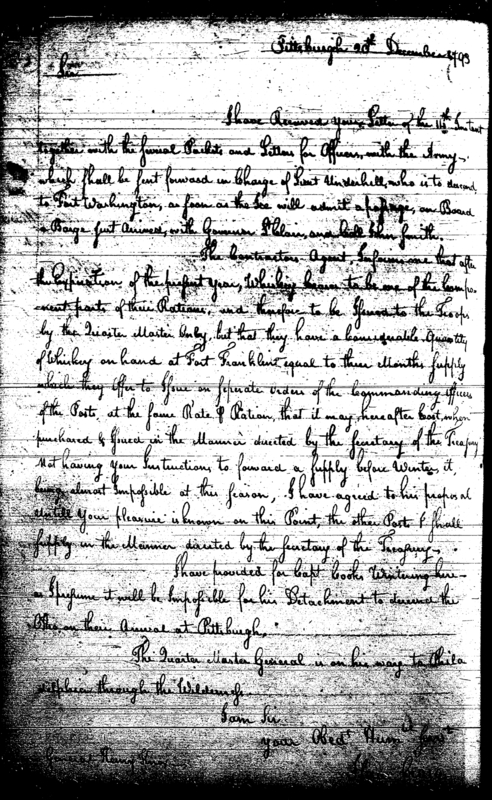 Pittsburgh 20th December 1793
Sir
I have Received your Letter of the 11th Instant
together with the several Packets and Letters for Officers, with the Army,
which shall be sent forward in Charge of Lieut Underhill, who is to descend
to Fort Washington, as soon as the Ice will admit a passage, on Board
a Barge just arrived, with Governor St Clair, and
The Contractors Agent Informs me that after
the Expiration of the present Year, Whiskey ceases to be one of the compo-
-nent parts of their Rations, and therefore to be Issued to the Troops
by the Quarter Master Only, but that they have a considerable Quantity
of Whiskey on hand at Fort Franklin equal to three Months supply
which they offer to Issue on separate orders of the Commanding Officer
of the Posts, at the same Rate Ration, that it may hereafter Cost, when
purchased & Issued in the Manner directed by the Secretary of the Treasury
Not having your Instructions to forward a supply before Winter, it,
being almost Impossible at this season, I have agreed to his proposal
untill Your pleasure is known on this Point, the other Posts I shall
supply in the Manner directed by the Secretary of the Treasury.
I have provided for Capt Cooks Wintering here
as I presume it will be Impossible for his Detachment to descend the
Ohio on their Arrival at Pittsburgh.
The Quarter Master General is on his way to Phila
delphia through the Wilderness.
I am Sir
your Obedt Humle Servt
General Henry Knox